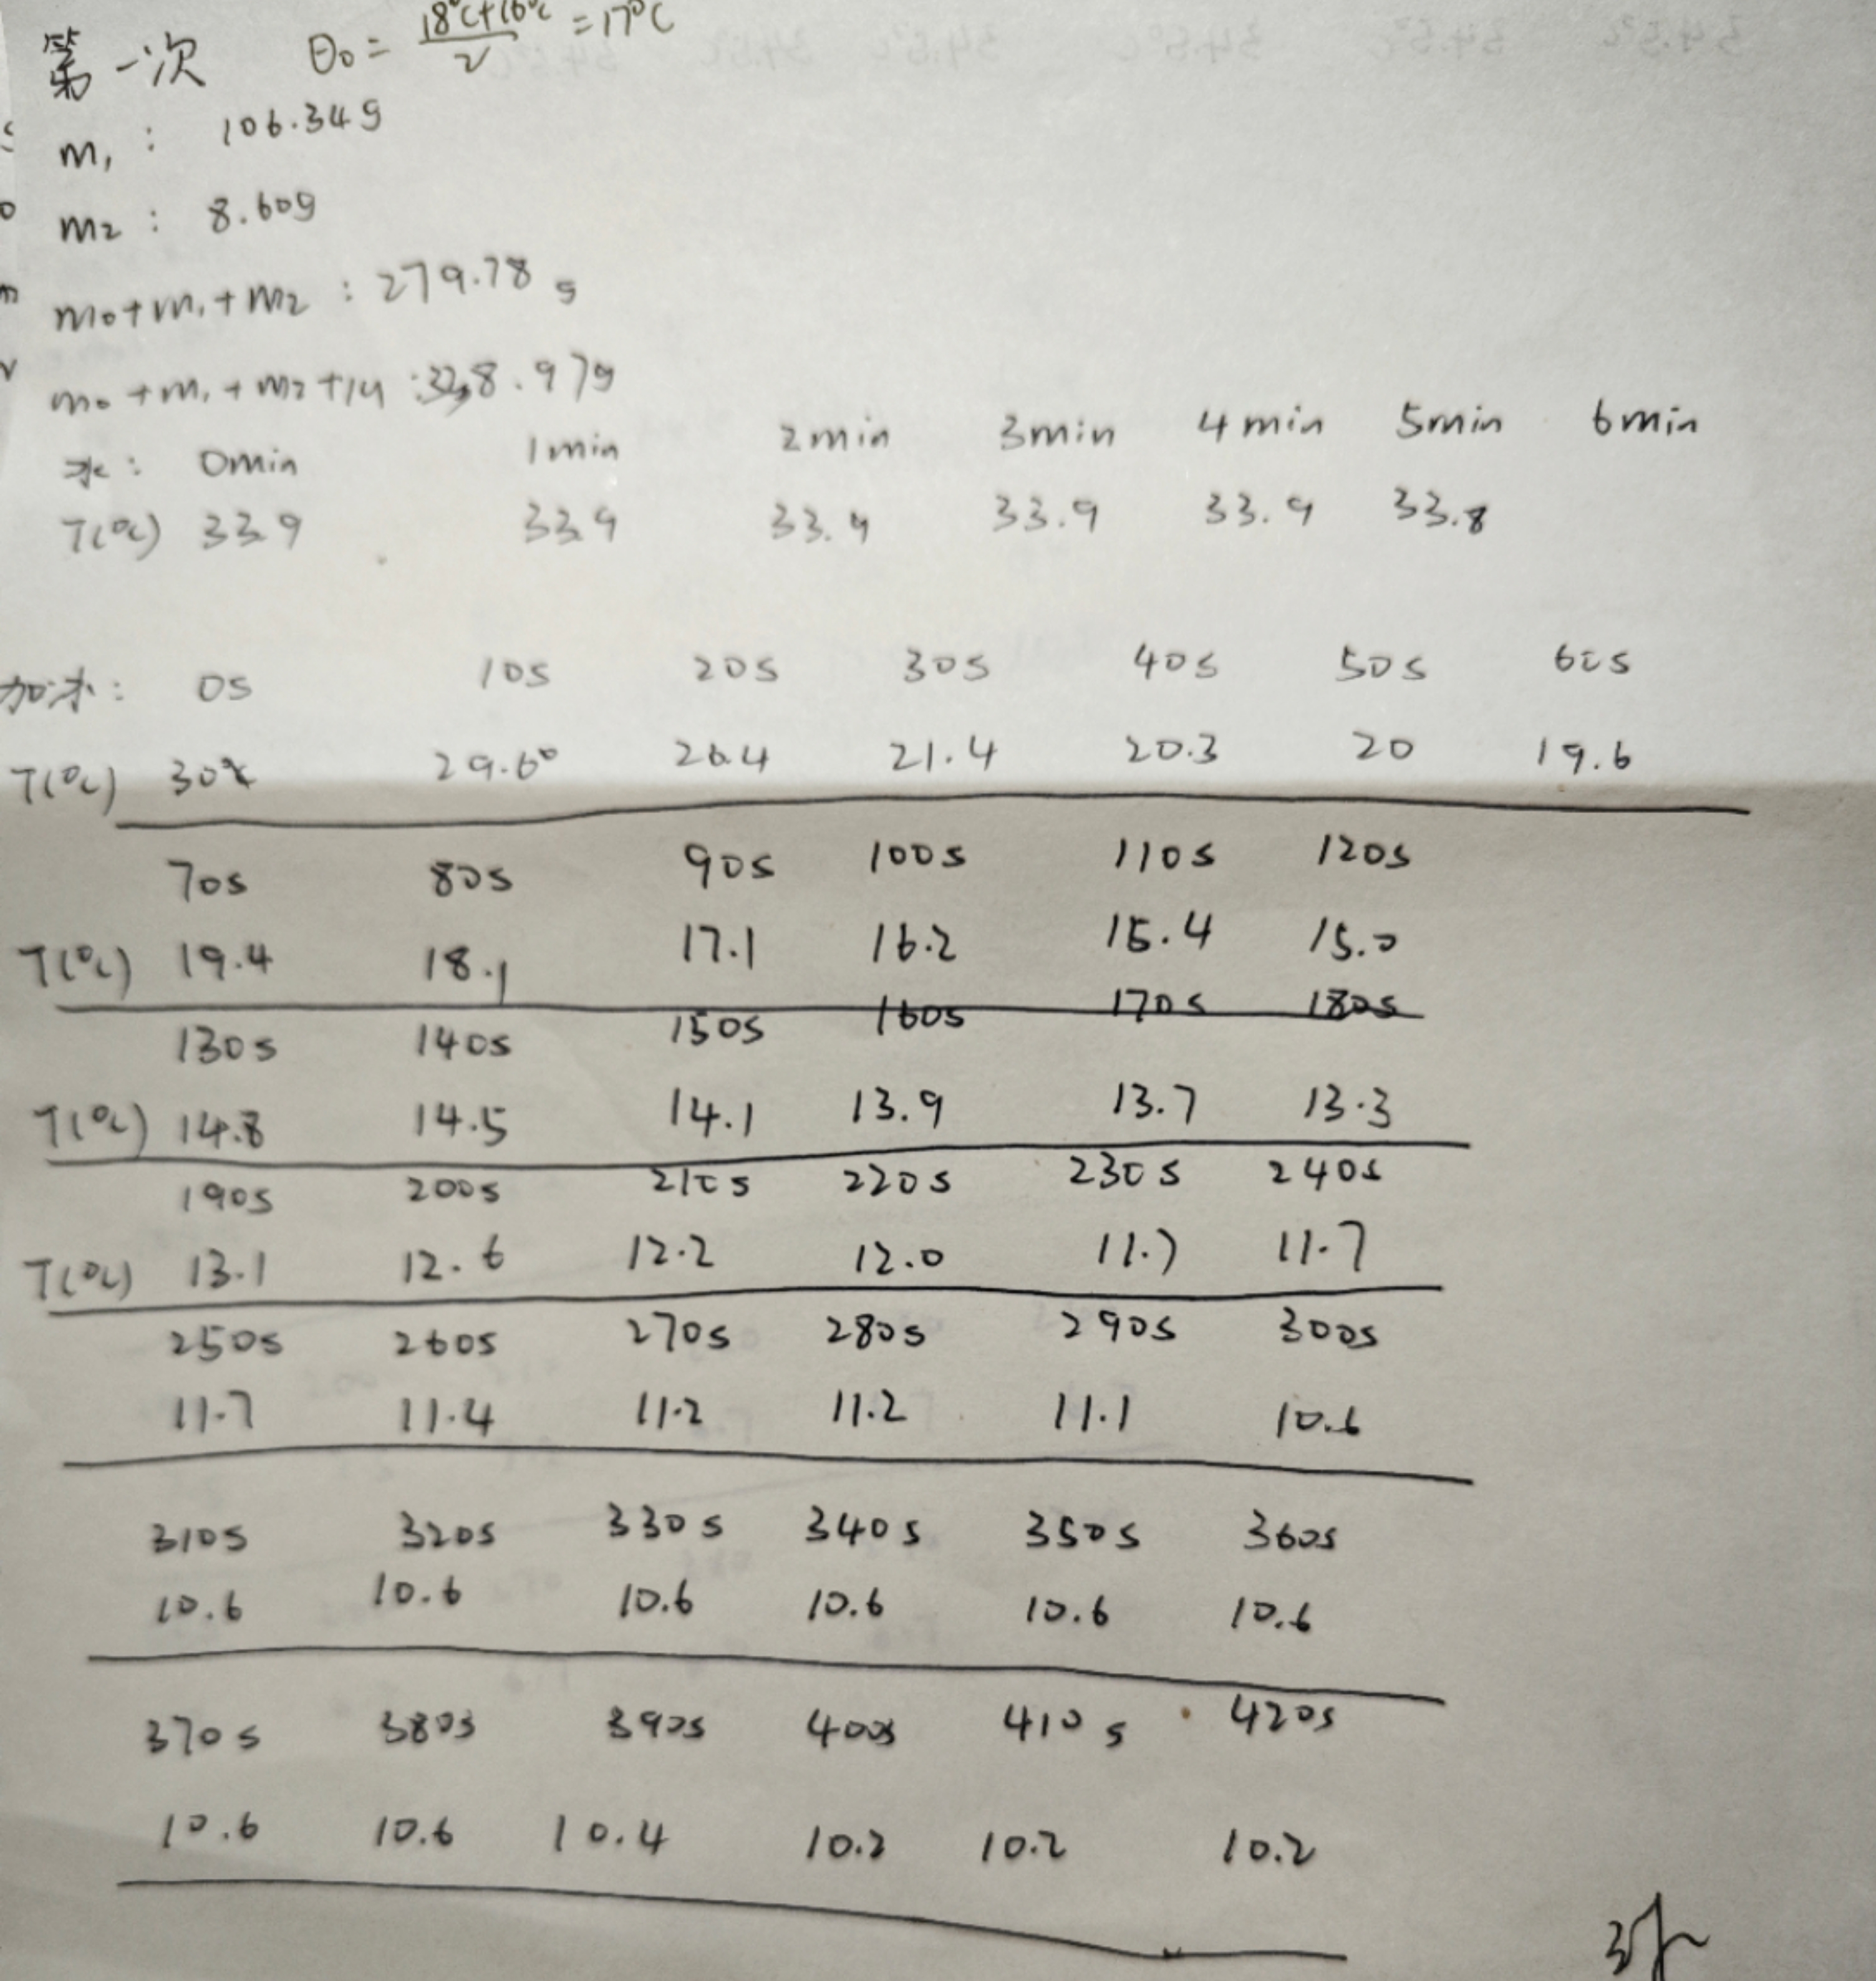 第一次 θ0 = (18℃+16℃)/2 = 17℃
m1 : 106.34g
m2 : 8.60g
m0+m1+m2 : 279.78g
m0+m1+m2+M : 328.97g
水: 0min 1min 2min 3min 4min 5min 6min
T(℃) 33.9 33.9 33.9 33.9 33.9 33.8
加冰: 0s 10s 20s 30s 40s 50s 60s
T(℃) 30℃ 29.6° 26.4 21.4 20.3 20 19.6
70s 80s 90s 100s 110s 120s
T(℃) 19.4 18.1 17.1 16.2 15.4 15.0
130s 140s 150s 160s 170s 180s
T(℃) 14.8 14.5 14.1 13.9 13.7 13.3
190s 200s 210s 220s 230s 240s
T(℃) 13.1 12.6 12.2 12.0 11.7 11.7
250s 260s 270s 280s 290s 300s
11.7 11.4 11.2 11.2 11.1 10.6
310s 320s 330s 340s 350s 360s
10.6 10.6 10.6 10.6 10.6 10.6
370s 380s 390s 400s 410s 420s
10.6 10.6 10.4 10.2 10.2 10.2